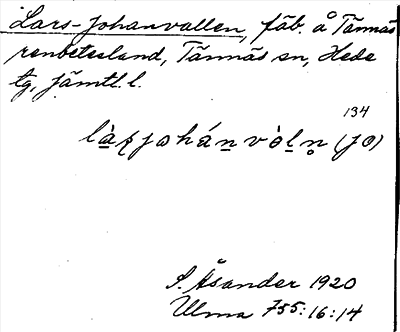 Lars-Johanvallen, fäb. å Tännäs
renbetesland, Tännäs sn, Hede
tg, jämtl. l.
134
J. Åsander 1920
Ulma 755:16:14